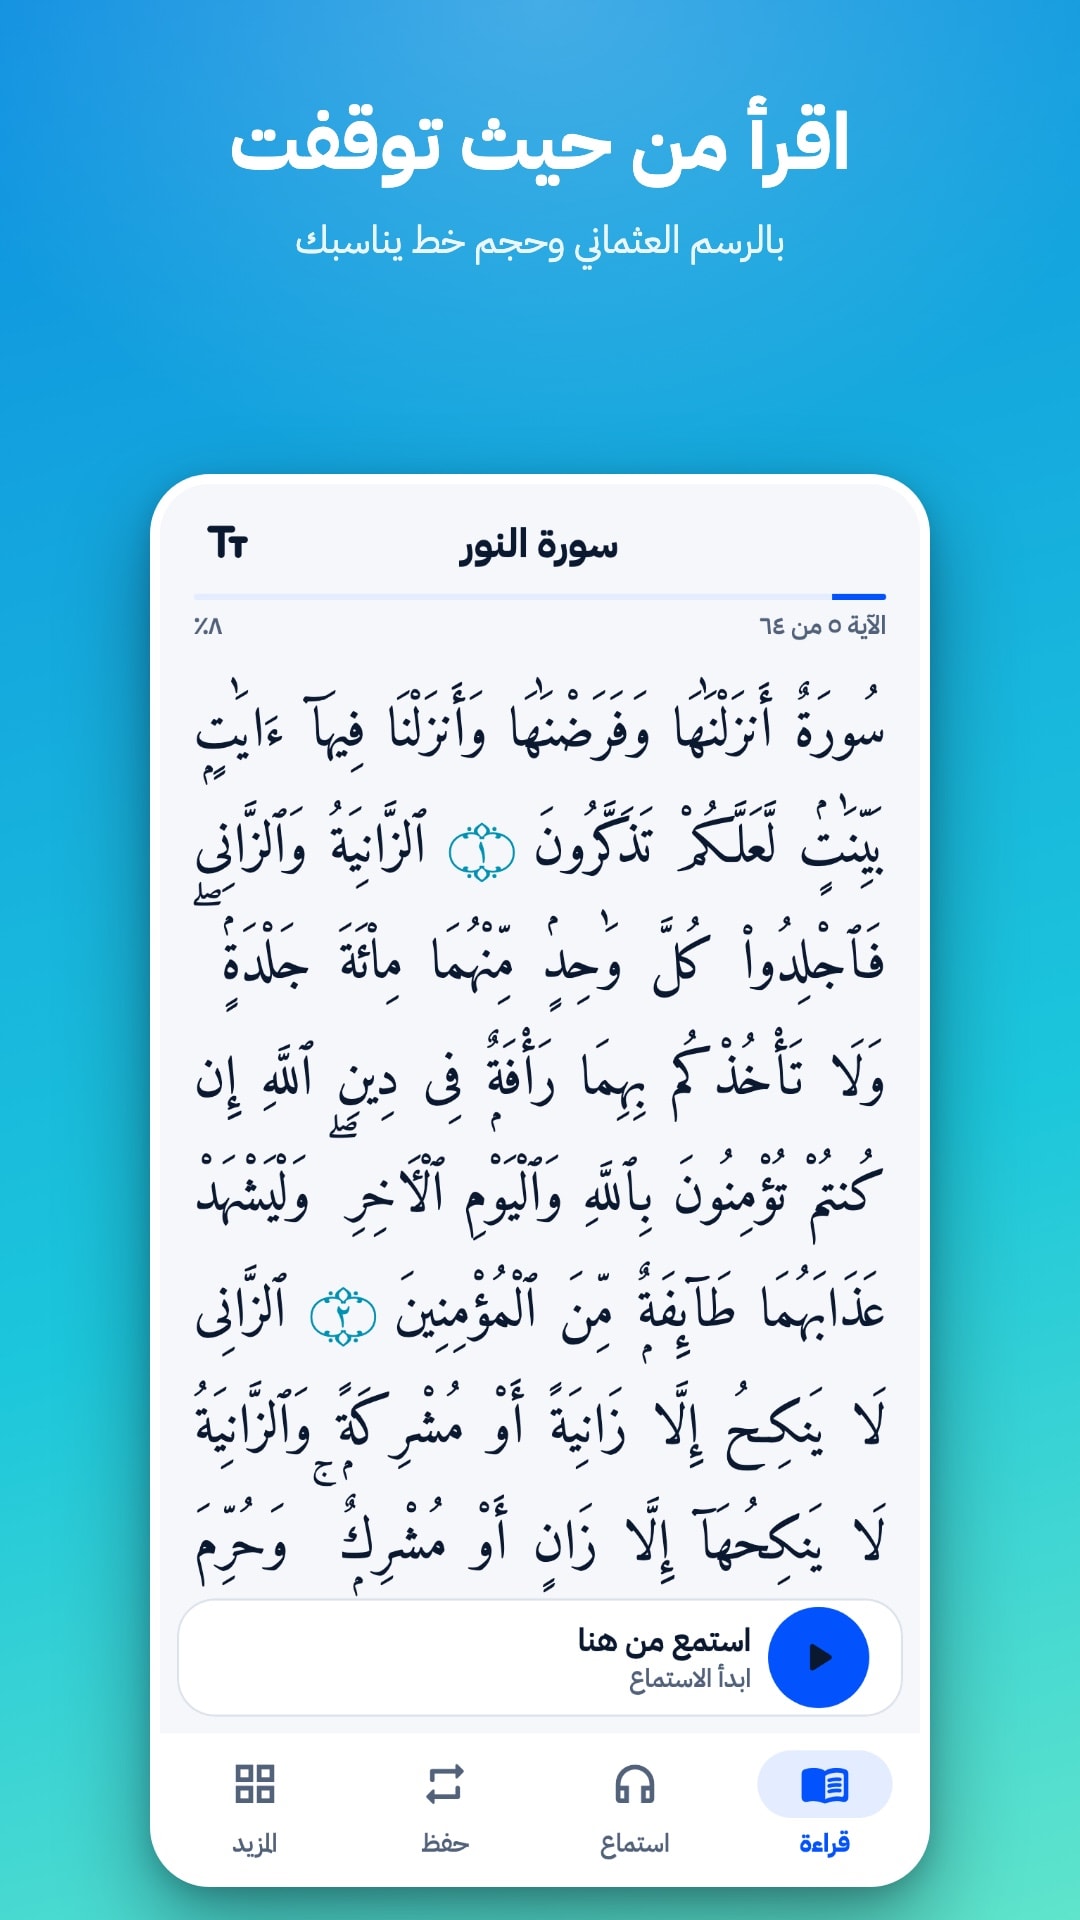 اقرأ من حيث توقفت
بالرسم العثماني وحجم خط يناسبك
سورة النور
الآية ٥ من ٦٤
٨٪
سُورَةٌ أَنزَلْنَٰهَا وَفَرَضْنَٰهَا وَأَنزَلْنَا فِيهَآ ءَايَٰتٍۭ
بَيِّنَٰتٍۢ لَّعَلَّكُمْ تَذَكَّرُونَ ١ ٱلزَّانِيَةُ وَٱلزَّانِى
فَٱجْلِدُوا۟ كُلَّ وَٰحِدٍۢ مِّنْهُمَا مِا۟ئَةَ جَلْدَةٍۢ ۖ
وَلَا تَأْخُذْكُم بِهِمَا رَأْفَةٌۭ فِى دِينِ ٱللَّهِ إِن
كُنتُمْ تُؤْمِنُونَ بِٱللَّهِ وَٱلْيَوْمِ ٱلْءَاخِرِ ۖ وَلْيَشْهَدْ
عَذَابَهُمَا طَآئِفَةٌۭ مِّنَ ٱلْمُؤْمِنِينَ ٢ ٱلزَّانِى
لَا يَنكِحُ إِلَّا زَانِيَةً أَوْ مُشْرِكَةًۭ وَٱلزَّانِيَةُ
لَا يَنكِحُهَآ إِلَّا زَانٍ أَوْ مُشْرِكٌۭ ۚ وَحُرِّمَ
استمع من هنا
ابدأ الاستماع
قراءة
استماع
حفظ
المزيد